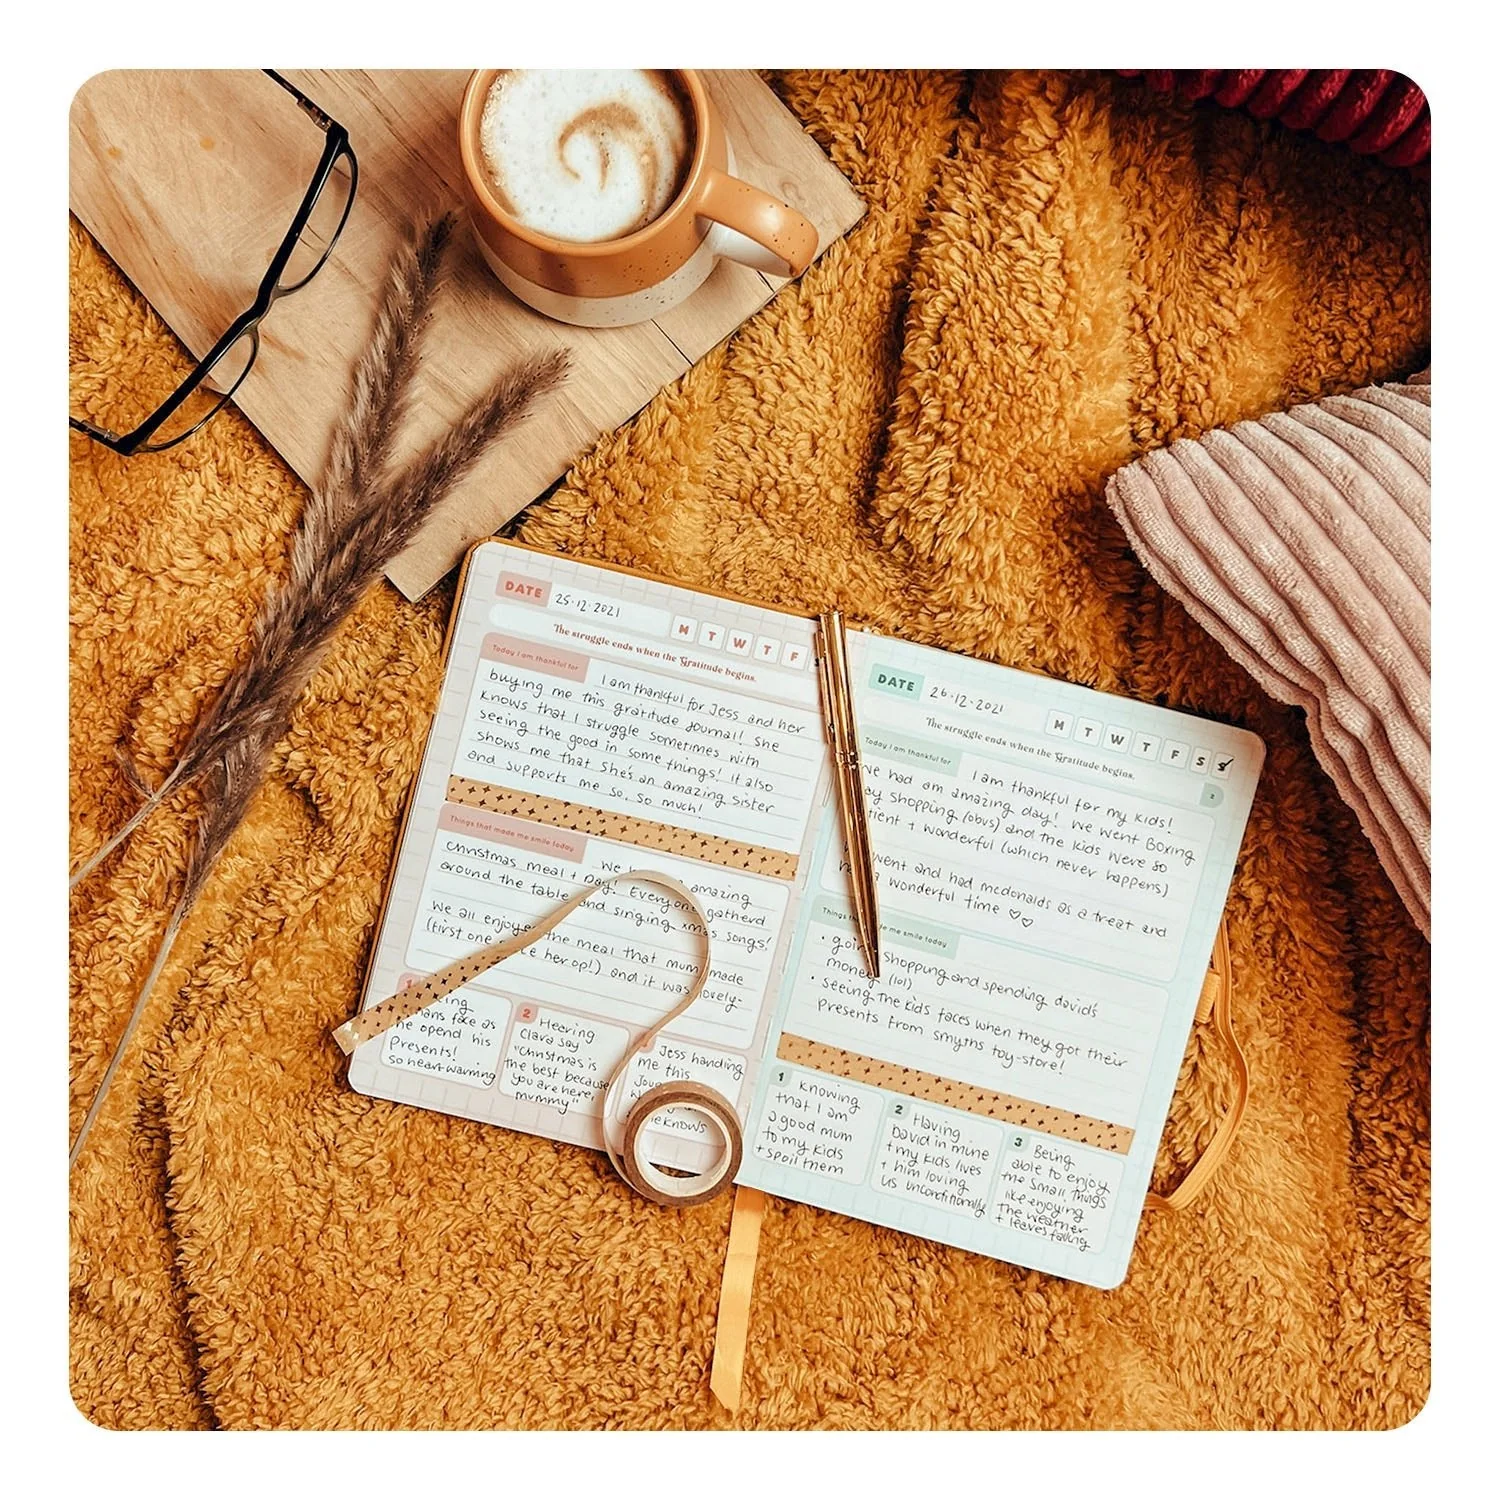 DATE 25.12.2021
M T W T F
The struggle ends when the Gratitude begins.
Today I am thankful for
I am thankful for Jess and her
buying me this gratitude journal! She
knows that I struggle sometimes with
seeing the good in some things! It also
shows me that she's an amazing sister
and supports me so, so much!
Things that made me smile today
We amazing
Christmas meal + Day! Everyone gatherd
around the table and singing xmas songs!
We all enjoyed the meal that mum made
(first one her op!) and it was lovely-
face as
he opend his
Presents!
so heart warming
2 Hearing
Clara say
"Christmas is
the best because
you are here,
mummy"
Jess handing
me this
knows
DATE 26.12.2021
M T W T F S S
The struggle ends when the Gratitude begins.
2
Today I am thankful for
I am thankful for my kids!
We had am amazing day! We went Boxing
Day Shopping (obvs) and the kids were so
+ wonderful (which never happens)
went and had mcdonalds as a treat and
a wonderful time ♡♡
Things me smile today
• going shopping and spending david's
money (lol)
• seeing the kids faces when they got their
presents from smyths toy-store!
1 Knowing
that I am
a good mum
to my kids
+ spoil them
2 Having
David in mine
+ my kids lives
+ him loving
us unconditionally
3 Being
able to enjoy
the small things
like enjoying
the weather
+ leaves falling